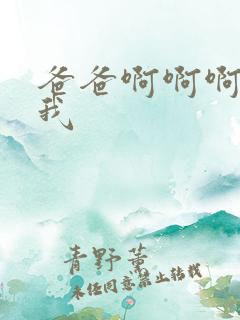 爸爸啊啊啊
我
青野薰
未经同意禁止转载